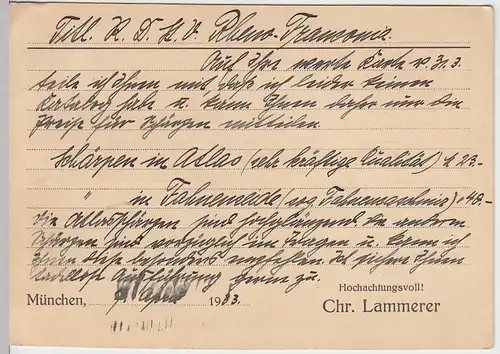 Titl. K. D. St. V. Rheno-Franconia.
Auf Ihre werte Karte v. 31. 3.
teile ich Ihnen mit daß ich leider keinen
Katalog habe u. kann Ihnen daher nur die
Preise für Schärpen mitteilen.
Schärpen in Atlas (sehr kräftige Qualität) á 23.-
" in Fahnenseide (sog. ) 
die Atlasschärpen sind hochglänzend, die anderen
Schärpen sind vorzüglich im Tragen u. kann ich
Ihnen diese besonders empfehlen. Ich sichere Ihnen
tadellose Ausführung gerne zu.
Hochachtungsvoll!
München, 1933. Chr. Lammerer